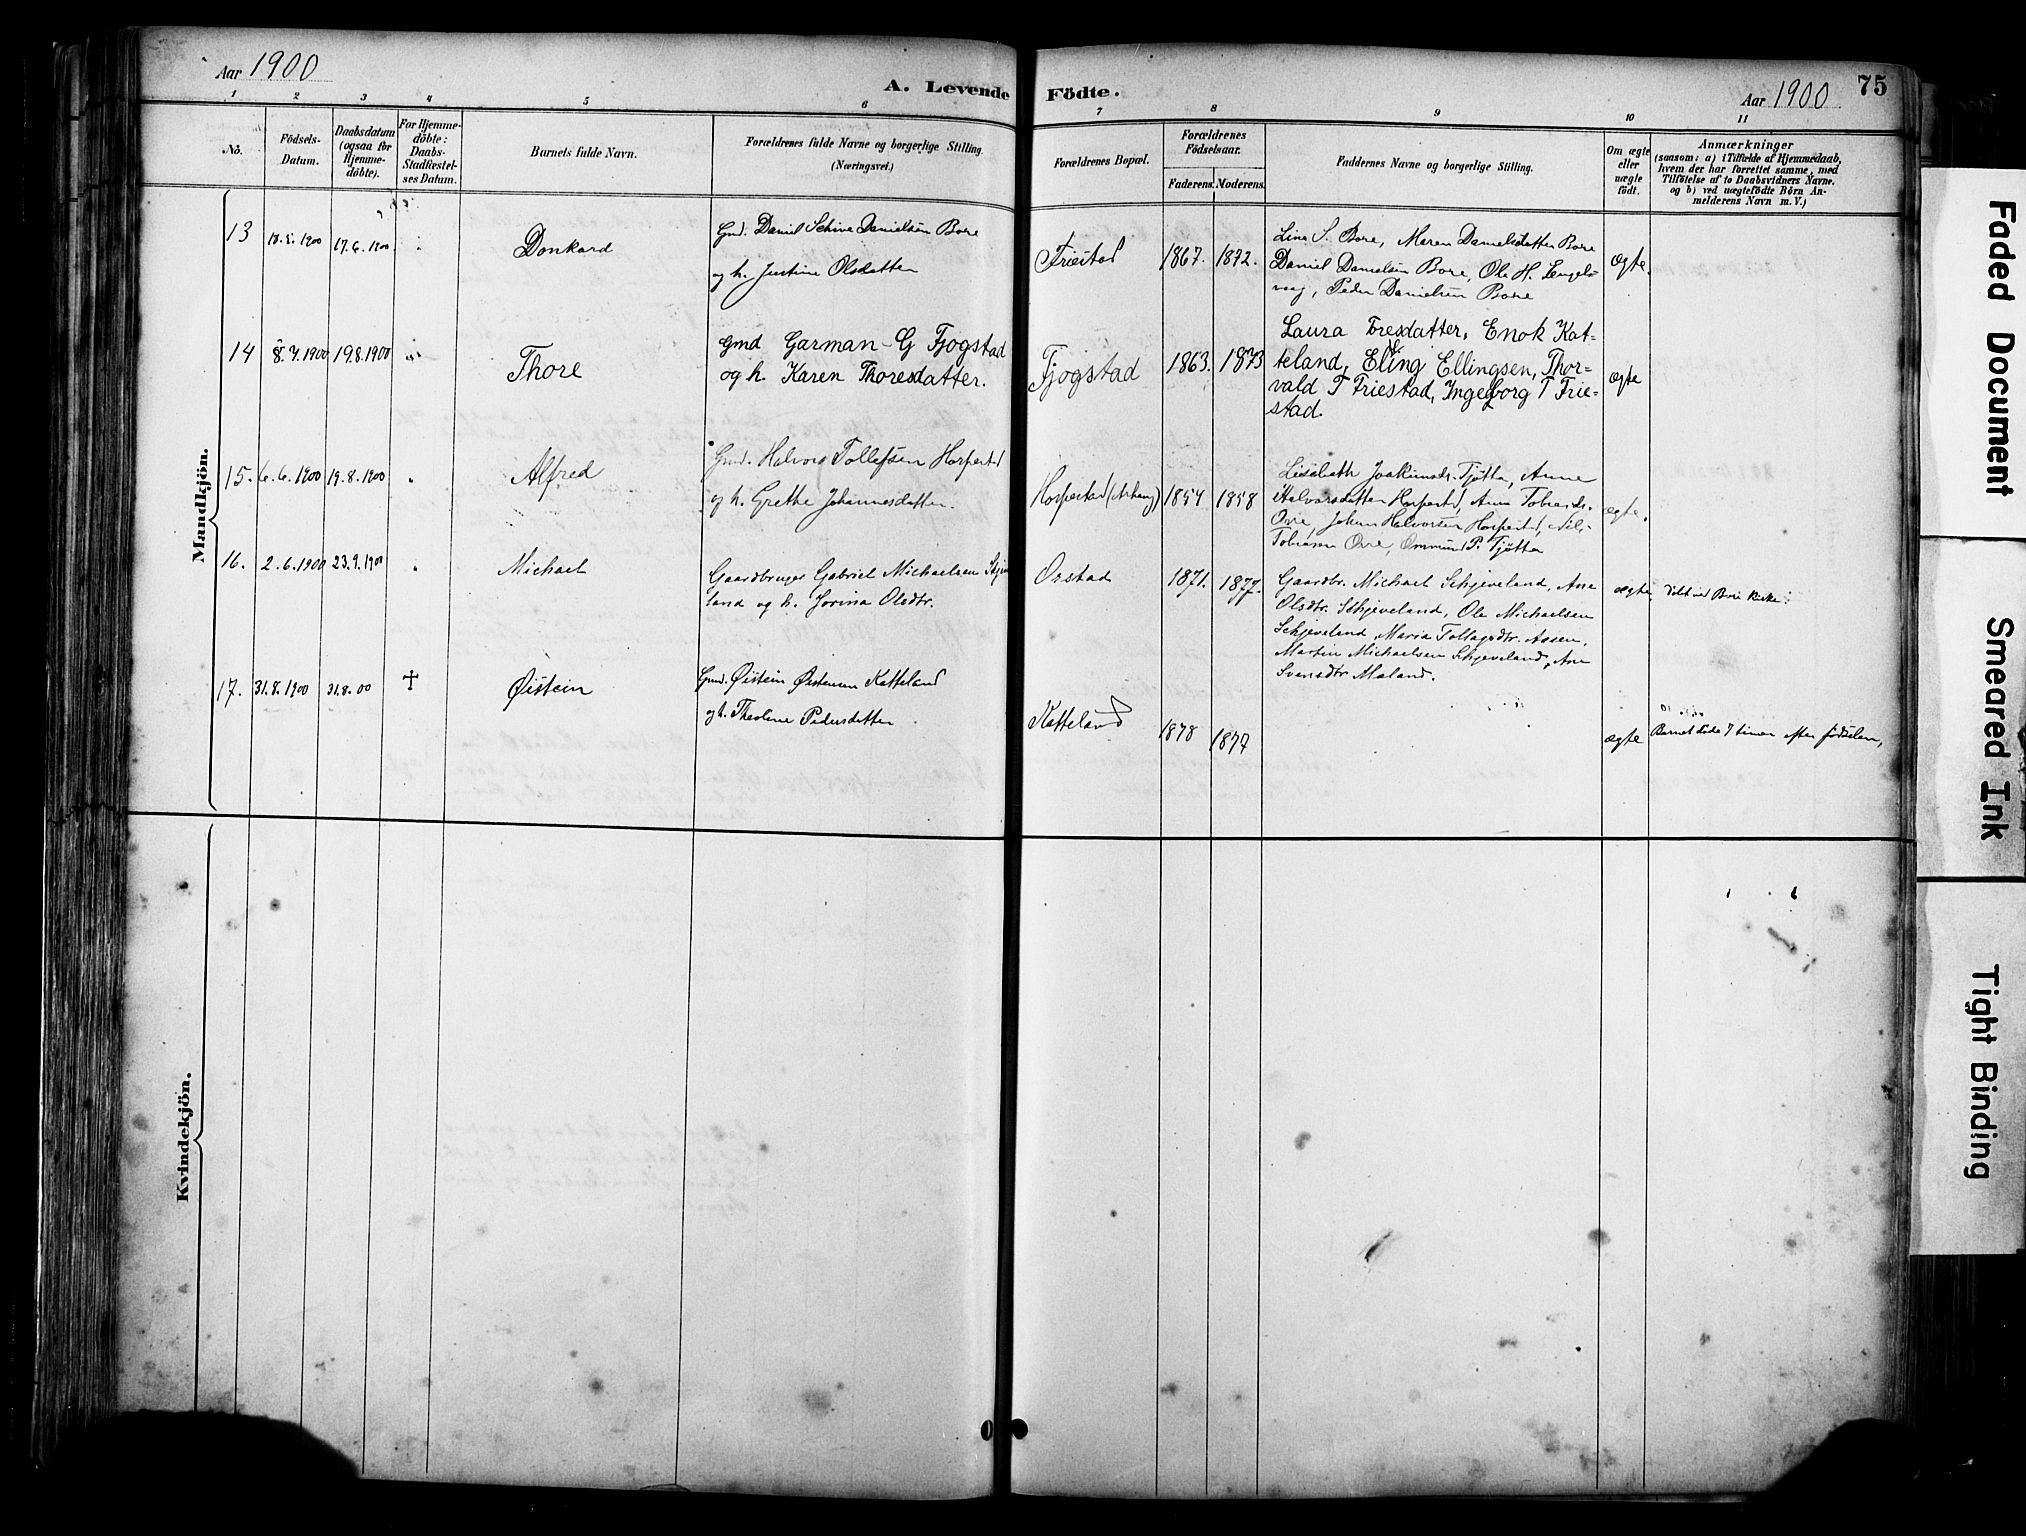 Aar 1900
A. Levende Födte.
Aar 1900
75
1 2 3 4 5 6 7 8 9 10 11
No.
Födsels-
Datum.
Daabsdatum
(ogsaa for
Hjemme-
döbte).
For Hjemme-
döbte:
Daabs-
Stadfæstel-
ses Datum.
Barnets fulde Navn.
Forældrenes fulde Navne og borgerlige Stilling.
(Næringsvei.)
Forældrenes Bopæl.
Forældrenes
Födselsaar.
Faderens. Moderens.
Faddernes Navne og borgerlige Stilling.
Om ægte
eller
uægte
födt.
Anmærkninger
(saasom: a) i Tilfælde af Hjemmedaab,
hvem der har forrettet samme, med
Tilföielse af to Daabsvidners Navne,
og b) ved uægtefödte Börn An-
melderens Navn m. V.)
Mandkjön.
13
17.6.1900
Donkard
Gmd. Daniel Schive Danielsen Bore
og h. Justine Olsdatter
Friestad
1867. 1872.
Lina S. Bore, Maren Danielsdatter Bore
Daniel Danielsen Bore, Ole H. Engels-
vaag, Peder Danielsen Bore
ægte.
14
8.7.1900
19.8.1900
Thore
Gmd Garman G Fjogstad
og h. Karen Thoresdatter.
Fjogstad
1863. 1873
Laura Toresdatter, Enok Kat-
teland, Eling Ellingsen, Thor-
vald T Friestad, Ingeborg T Frie-
stad.
ægte
15.
6.6.1900
19.8.1900
Alfred
Gmd. Halvor Tollefsen Horpest
og h. Grethe Johannesdatter.
Horpestad
1854 1858
Lisebeth Joakimsd. Tjøtta, Anne
Halvorsdatter Horpest, Anna Tobiasd.
Orre, Johan Halvorsen Horpest, Nils
Tobiasen Orre, Ommund P. Tjøtta
ægte.
16.
2.6.1900
23.9.1900
Michael
Gaardbruger Gabriel Michaelsen Skjeve
land og h. Jorina Olsdtr.
Orstad
1871. 1877.
Gaardbr. Michael Schjeveland, Ane
Olsdtr. Schjeveland, Ole Michaelsen
Schjeveland, Maria Tollagsdtr. Aasen,
Martin Michaelsen Schjeveland, Ane
Svensdtr Maland.
ægte
Døbt ved Bore Kirke.
17.
31.8.1900
31.8.00
†
Øistein
Gmd. Øistein Øistensen Katteland
og h. Theoline Pedersdatter
Katteland
1878 1877
ægte
Barnet døde 7 timer efter fødselen,
Kvindekjön.
Faded Document
Smeared Ink
Tight Binding